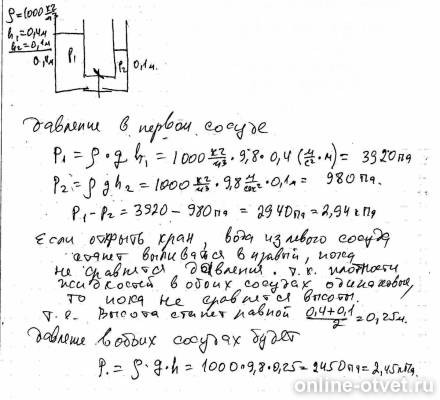 ρ=1000 кг/м
h₁=0,4м
h₂=0,1м
0,4м P₁ P₂ 0,1м.
Давление в первом сосуде
P₁ = ρ·g h₁ = 1000 кг/м3 · 9,8 · 0,4 (м/с² · м) = 3920 па
P₂ = ρ g h₂ = 1000 кг/м3 · 9,8 м/сек² · 0,1м = 980 па.
P₁-P₂ = 3920 - 980 па = 2940 па = 2,94 кПа
Если открыть кран, вода из левого сосуда
станет выливатся в правый, пока
не сравнятся давления. т.к. плотности
жидкостей в обоих сосудах одинаковые,
то пока не сравнятся высоты.
т.е. Высота станет равной (0,4+0,1)/2 = 0,25м.
Давление в обоих сосудах будет
P. = ρ·g·h = 1000·9,8·0,25 = 2450 Па = 2,45 кПа.
online-otvet.ru